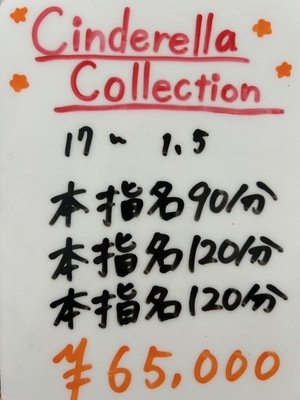 Cinderella
Collection
17~ 1.5
本指名90分
本指名120分
本指名120分
¥65,000